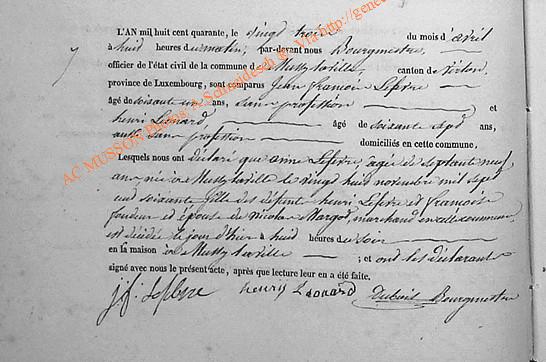 L'AN mil huit cent quarante, le vingt trois du mois d'avril
à huit heures du matin, par-devant nous Bourgmestre,
officier de l'état civil de la commune de Mussy la ville, canton de Virton,
province de Luxembourg, sont comparus Jean françois Lefevre
âgé de soixante un ans, sans profession et
henri Léonard, âgé de soixante sept ans,
aussi sans profession domiciliés en cette commune,
Lesquels nous ont déclaré que anne Lefevre, agée de septante neuf
ans, née à Mussy la ville le vingt huit novembre mil sept
cent soixante fille des défunts henri Lefevre et françoise
et épouse de nicolas Margot, marchand en cette commune
est décédée le jour d'hier à huit heures du soir
en la maison à Mussy la ville ; et ont les déclarants
signé avec nous le présent acte, après que lecture leur en a été faite.
j. f. Lefevre henry Léonard Dubois Bourgmestre
AC MUSSON Photos